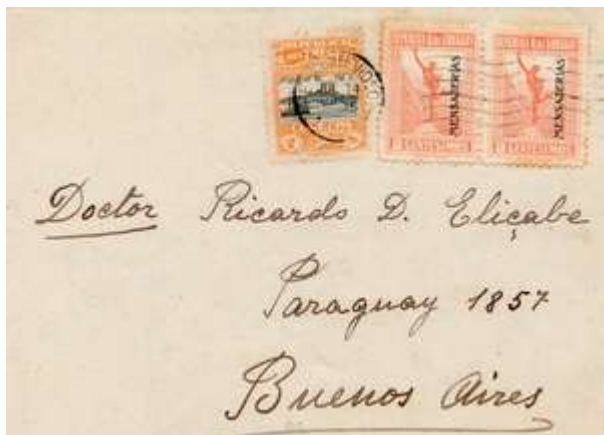 MENSAJERIAS MENSAJERIAS
Doctor Ricardo D. Eliçabe
Paraguay 1857
Buenos Aires